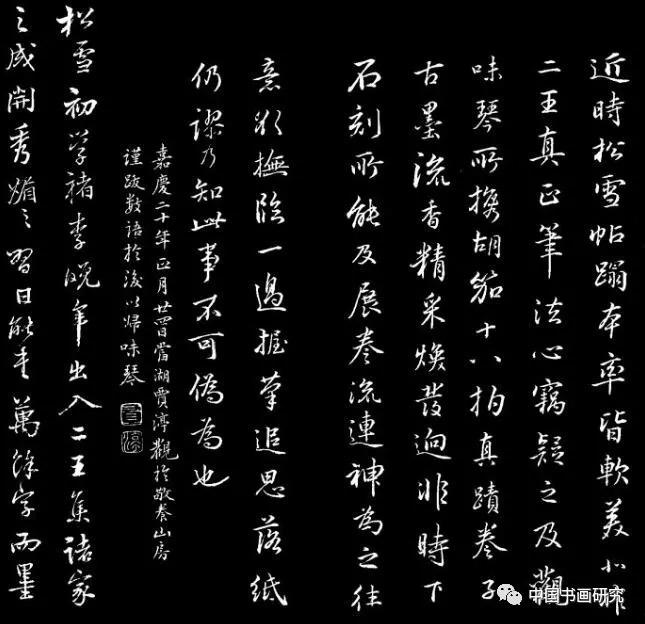 近時松雪帖蹋本率皆軟美非
二王真正筆法心竊疑之及觀
味琴所攜胡笳十八拍真蹟卷子
古墨流香精采煥發迥非時下
石刻所能及展卷流連神為之往
意欲撫臨一過握筆追思落紙
仍謬乃知此事不可偽為也
嘉慶二十年正月廿四日當湖賈渟觀於敬養山房
謹跋數語於後以歸味琴
松雪初學褚李晚年出入二王集諸家
之成開秀媚之習日能書萬餘字而墨
中国书画研究